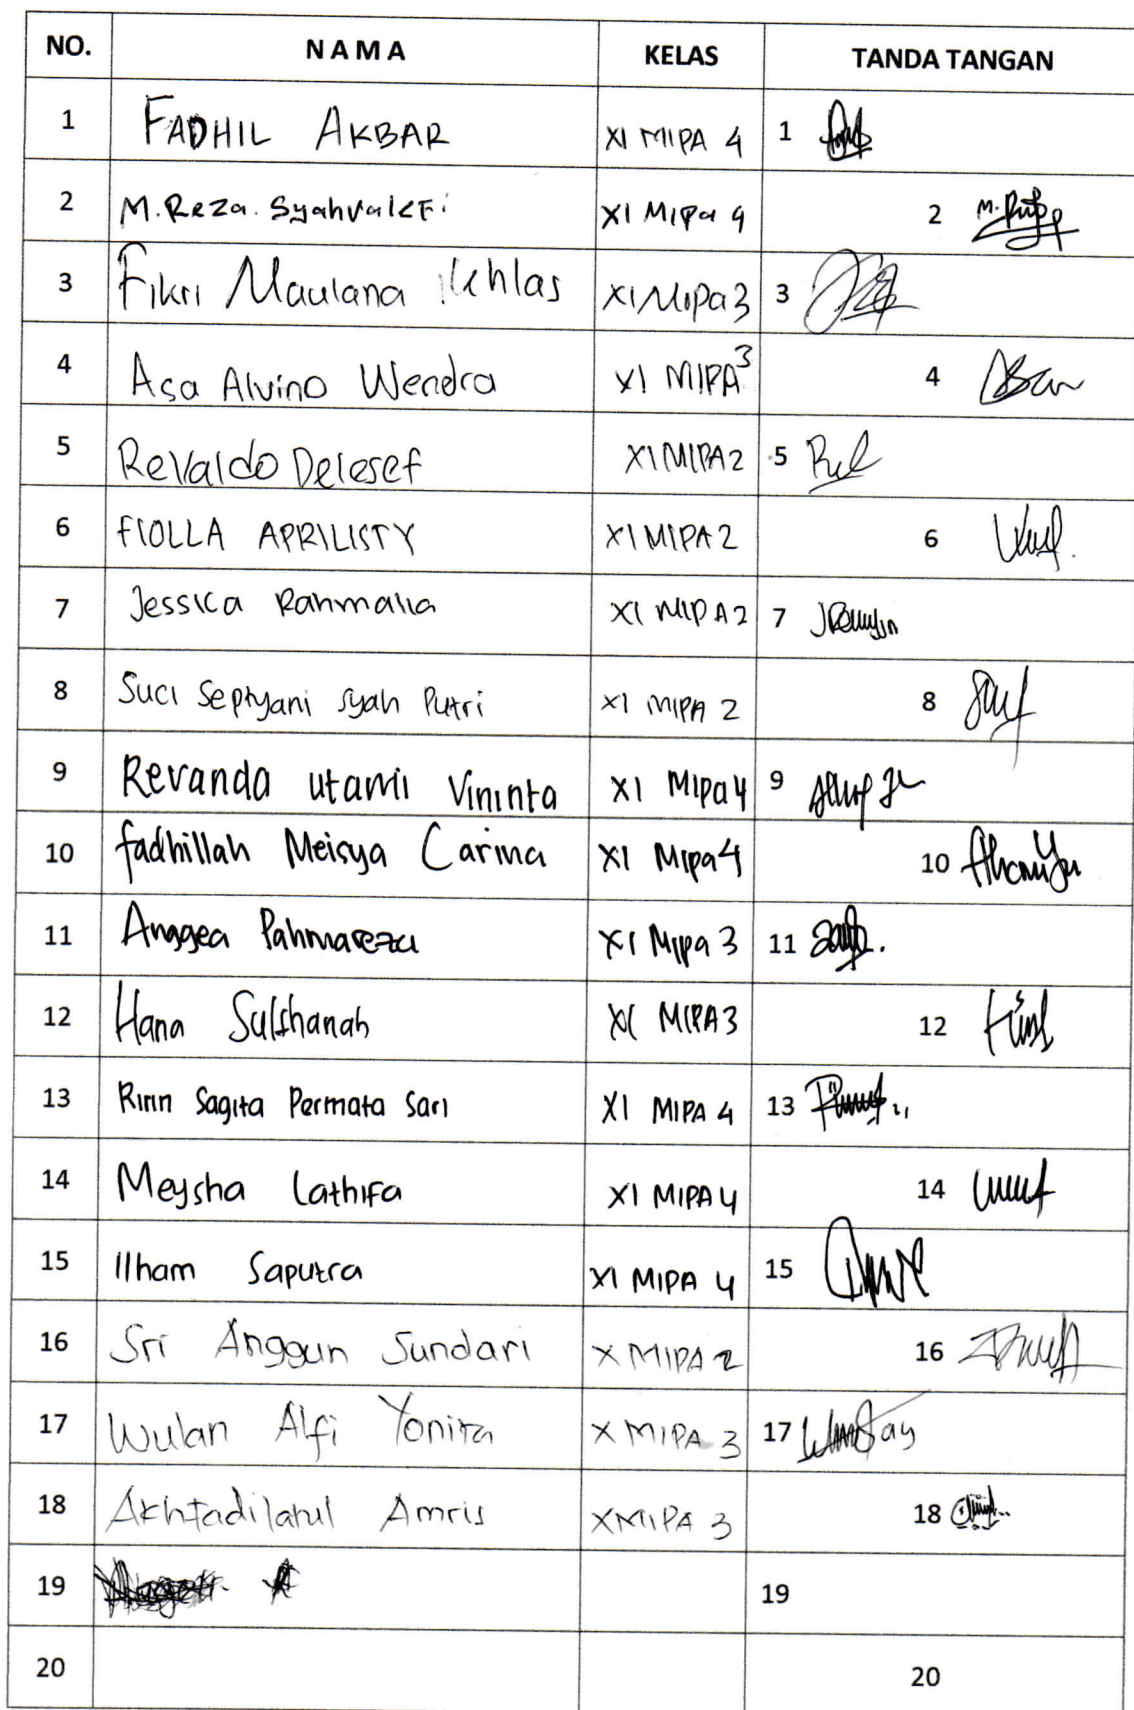 NO. NAMA KELAS TANDA TANGAN
1 FADHIL AKBAR XI MIPA 4 1
2 M. Reza. Syahvalefi XI Mipa 4 2
3 Fikri Maulana ikhlas XI Mipa 3 3
4 Asa Alvino Wendra XI MIPA 3 4
5 Revaldo Delesef XI MIPA 2 5
6 FIOLLA APRILISTY XI MIPA 2 6
7 Jessica Rahmalia XI MIPA 2 7
8 Suci Septyani Syah Putri XI MIPA 2 8
9 Revanda utami Vininta XI Mipa 4 9
10 fadhillah Meisya Carina XI Mipa 4 10
11 Anggea Pahmareza XI Mipa 3 11
12 Hana Sulthanah XI MIPA 3 12
13 Rinn Sagita Permata Sari XI MIPA 4 13
14 Meysha Lathifa XI MIPA 4 14
15 Ilham Saputra XI MIPA 4 15
16 Sri Anggun Sundari X MIPA 2 16
17 Wulan Alfi Yonita X MIPA 3 17
18 Akhtadilatul Amris X MIPA 3 18
19 19
20 20